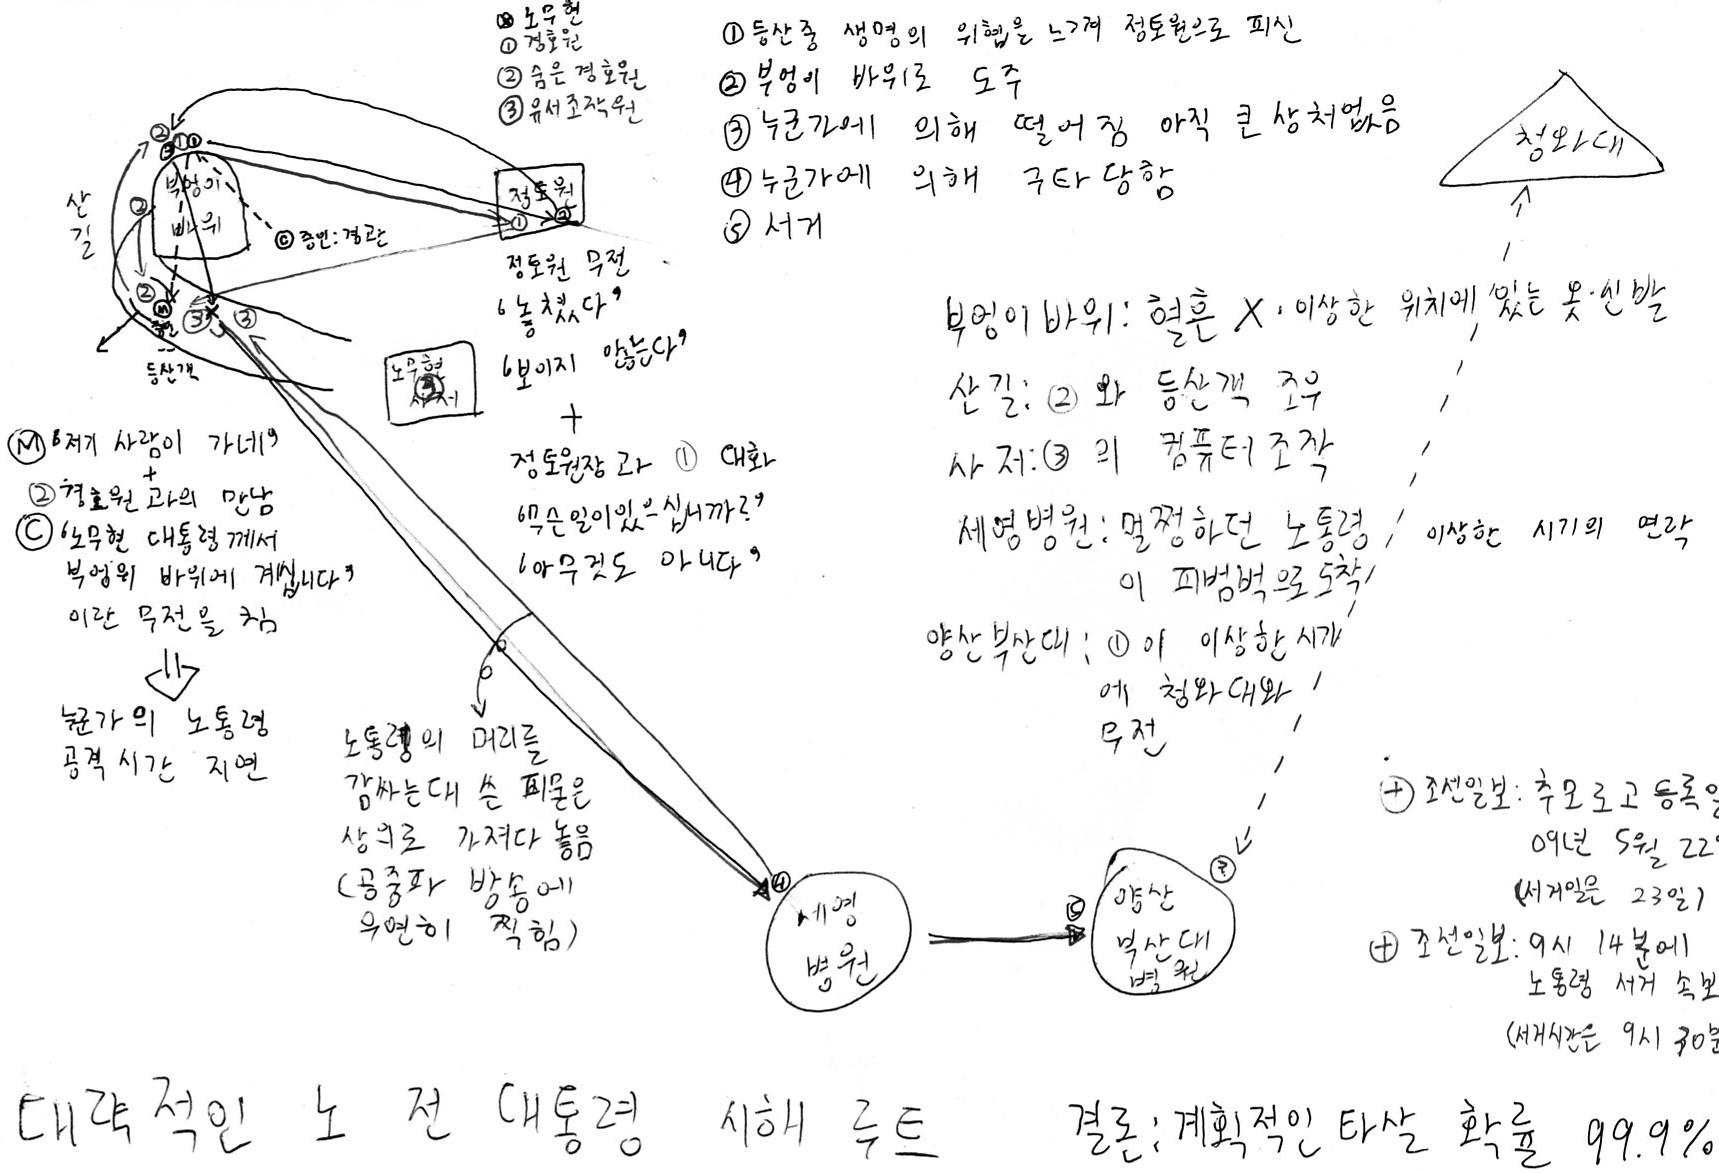 노무현
① 경호원
② 숨은 경호원
③ 유서조작원
① 등산중 생명의 위협을 느껴 정토원으로 피신
② 부엉이 바위로 도주
③ 누군가에 의해 떨어짐 아직 큰 상처없음
④ 누군가에 의해 구타 당함
⑤ 서거
청와대
② ① ①
③
부엉이
바위
산
길
②
ⓒ 증인:경관
정토원
① ②
② Ⓜ ③ ③
증인
등산객
정토원 무전
'놓쳤다'
'보이지 않는다'
+
정토원장과 ① 대화
'무슨일이있으십니까?'
'아무것도 아니다'
노무현
사저
Ⓜ '저기 사람이 가네'
+
② 경호원과의 만남
ⓒ '노무현 대통령께서
부엉위 바위에 계십니다'
이란 무전을 침
누군가의 노통령
공격시간 지연
노통령의 머리를
감싸는대 쓴 피묻은
상의로 가져다 놓음
(공중파 방송에
우연히 찍힘)
부엉이바위: 혈흔 X · 이상한 위치에 있는 옷·신발
산길: ② 와 등산객 조우
사저: ③ 의 컴퓨터조작
세영병원: 멀쩡하던 노통령
이 피범벅으로 도착
이상한 시기의 연락
양산부산대: ① 이 이상한시기
에 청와대와
무전
④
세영
병원
⑤
양산
부산대
병원
⊕ 조선일보: 추모로고 등록일
09년 5월 22
(서거일은 23일)
⊕ 조선일보: 9시 14분에
노통령 서거 속보
(서거시간은 9시 30분
대략적인 노 전 대통령 시해 루트
결론:계획적인 타살 확률 99.9%